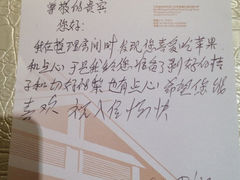 尊敬的贵宾
您好:
我在整理房间时发现您喜爱吃苹果
和点心 于是我给您准备了剥好的桔
子和切好的 也有点心 希望您能
喜欢 祝入住愉快